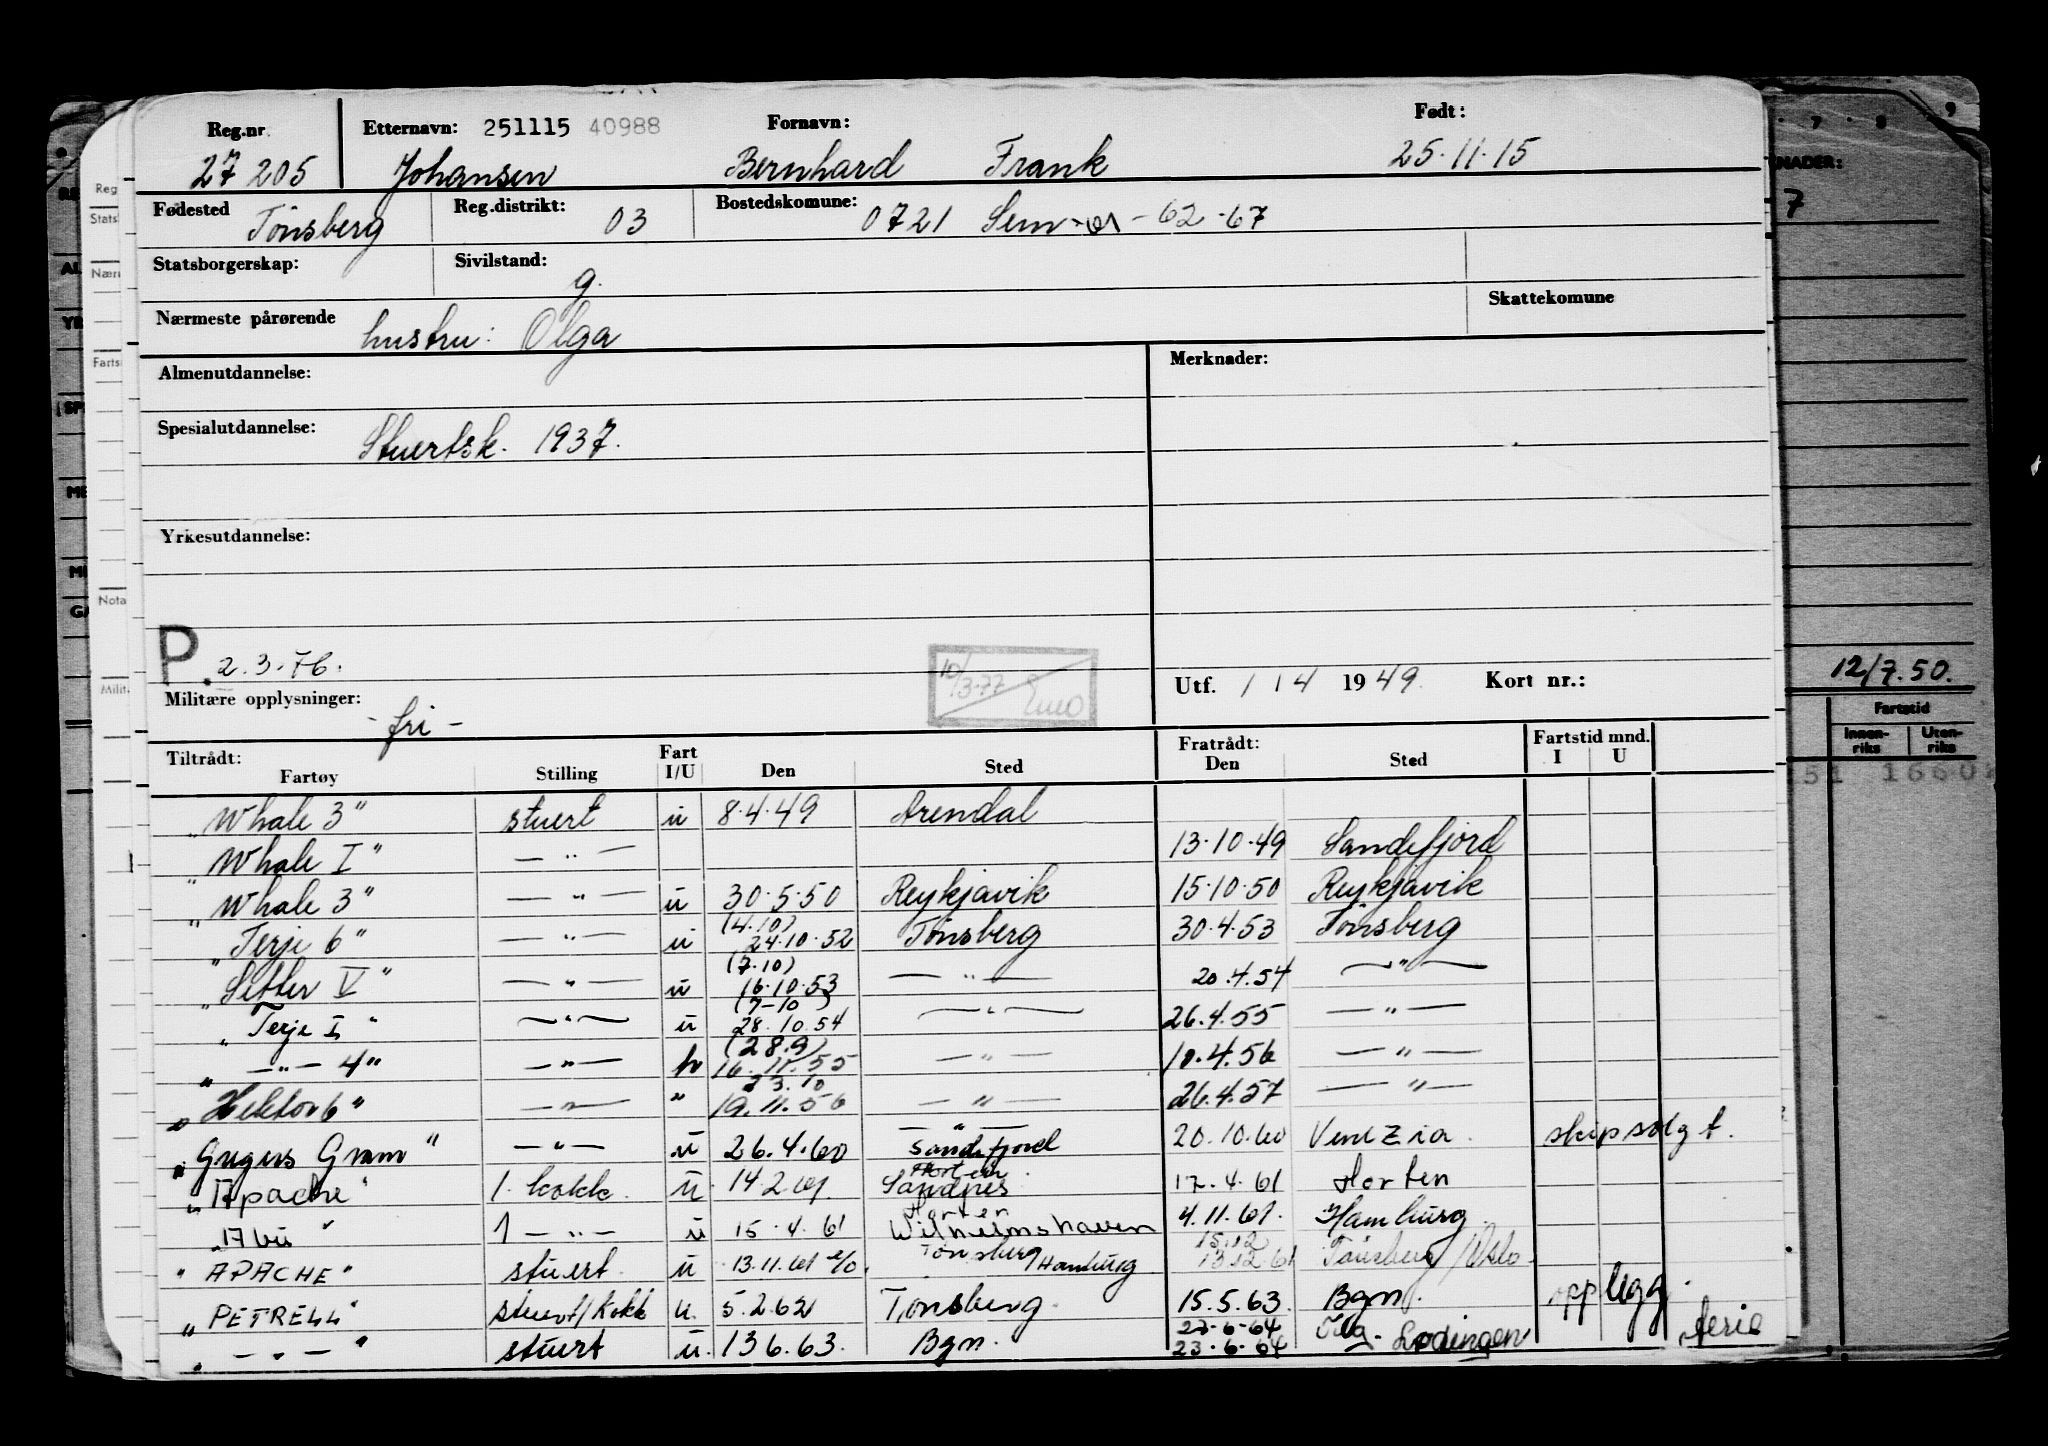 Reg.nr. Etternavn: 251115 40988 Fornavn: Født:
27205 Johansen Bernhard Frank 25.11.15
Fødested Tönsberg Reg.distrikt: 03 Bostedskomune: 0721 Sem -61-62-67
Statsborgerskap: Sivilstand: g.
Skattekomune
Nærmeste pårørende hustru: Olga
Almenutdannelse: Merknader:
Spesialutdannelse: Stuertsk. 1937.
Yrkesutdannelse:
P. 2.3.76.
10/3.77
Utf. 1/4 1949. Kort nr.:
Militære opplysninger: -fri-
Tiltrådt: Fart Fratrådt: Fartstid mnd.
Fartøy Stilling I/U Den Sted Den Sted I U
"Whale 3" stuert u 8.4.49 Arendal
"Whale I" — " — 13.10.49 Sandefjord
"Whale 3" — " — u 30.5.50 Reykjavik 15.10.50 Reykjavik
"Terje 6" — " — u (4.10) 24.10.52 Tönsberg 30.4.53 Tönsberg
"Setter V" — " — u (7.10) 16.10.53 — " — 20.4.54 — " —
"Terje I" — " — u (7-10) 28.10.54 — " — 26.4.55 — " —
" — " — 4" — " — (28.9) 16.11.55 — " — 10.4.56 — " —
"Hektor 6" — " — " 23.10 19.11.56 — " — 26.4.57 — " —
"Gregers Gram" — " — u 26.4.60 — " — Sandefjord 20.10.60 Venezia. skip solgt.
"Apache" 1. kokk. u 14.2.61. Horten Sandnes 17.4.61 Horten
1 — " — u 15.4.61 Horten Wilhelmshaven 4.11.61. Hamburg.
"APACHE" stuert. u 13.11.61 Tönsberg/Hamburg 15.12 13.12.61 Tönsberg/Oslo.
"PETRELL" stuert/kokk u. 5.2.62 Tönsberg. 15.5.63. Bgn. opplegg.
" — " — " stuert u. 13.6.63. Bgn. 23.6.64 23.6.64 Lødingen ferie
NADER:
7
12/7.50.
Fartstid
Innen-riks Uten-riks
51 1660
Reg
Stats
Nærn
Farts
Nota
Milit